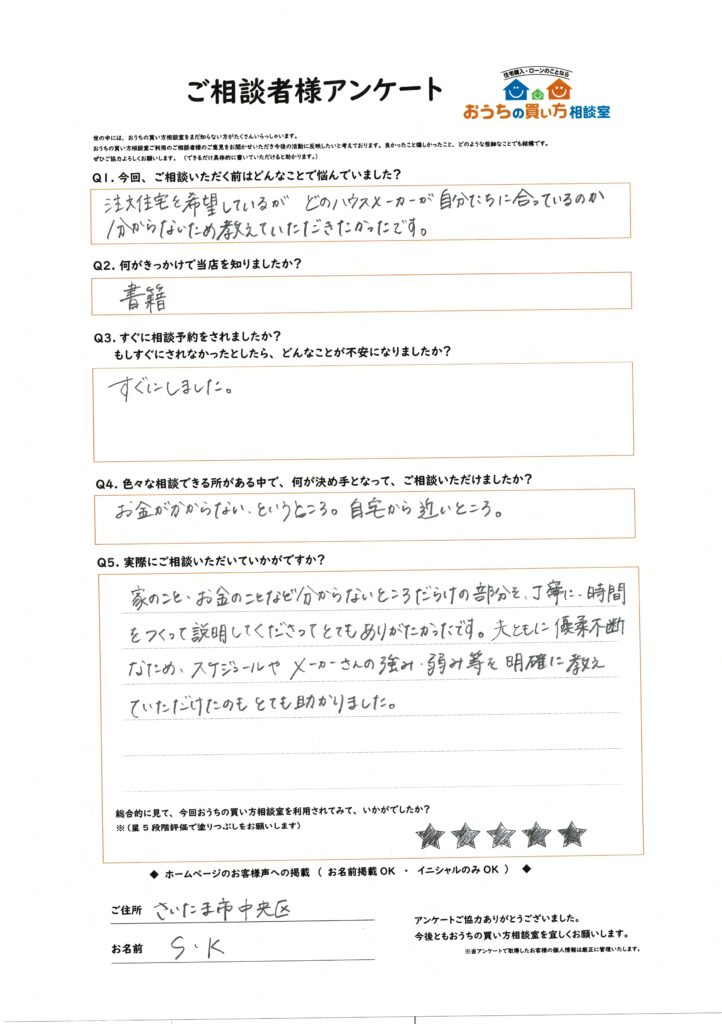 ご相談者様アンケート
住宅購入・ローンのことなら
おうちの買い方相談室
世の中には、おうちの買い方相談室をまだ知らない方がたくさんいらっしゃいます。
おうちの買い方相談室ご利用のご相談者様のご意見をお聞かせいただき今後の活動に反映したいと考えております。良かったこと嬉しかったこと、どのような些細なことでも結構です。
ぜひご協力よろしくお願いします。（できるだけ具体的に書いていただけると助かります。）
Q1. 今回、ご相談いただく前はどんなことで悩んでいました？
注文住宅を希望しているが どのハウスメーカーが自分たちに合っているのか
分からないため教えていただきたかったです。
Q2. 何がきっかけで当店を知りましたか？
書籍
Q3. すぐに相談予約をされましたか？
もしすぐにされなかったとしたら、どんなことが不安になりましたか？
すぐにしました。
Q4. 色々な相談できる所がある中で、何が決め手となって、ご相談いただけましたか？
お金がかからない、というところ。自宅から近いところ。
Q5. 実際にご相談いただいていかがですか？
家のこと・お金のことなど分からないところだらけの部分を、丁寧に、時間
をつくって説明してくださってとてもありがたかったです。夫ともに優柔不断
なため、スケジュールやメーカーさんの強み・弱み等を明確に教え
ていただけたのもとても助かりました。
総合的に見て、今回おうちの買い方相談室を利用されてみて、いかがでしたか？
※（星５段階評価で塗りつぶしをお願いします）
★★★★★
◆ ホームページのお客様声への掲載（ お名前掲載OK ・ イニシャルのみOK ） ◆
ご住所 さいたま市中央区
お名前 S・K
アンケートご協力ありがとうございました。
今後ともおうちの買い方相談室を宜しくお願いします。
※当アンケートで取得したお客様の個人情報は厳正に管理いたします。